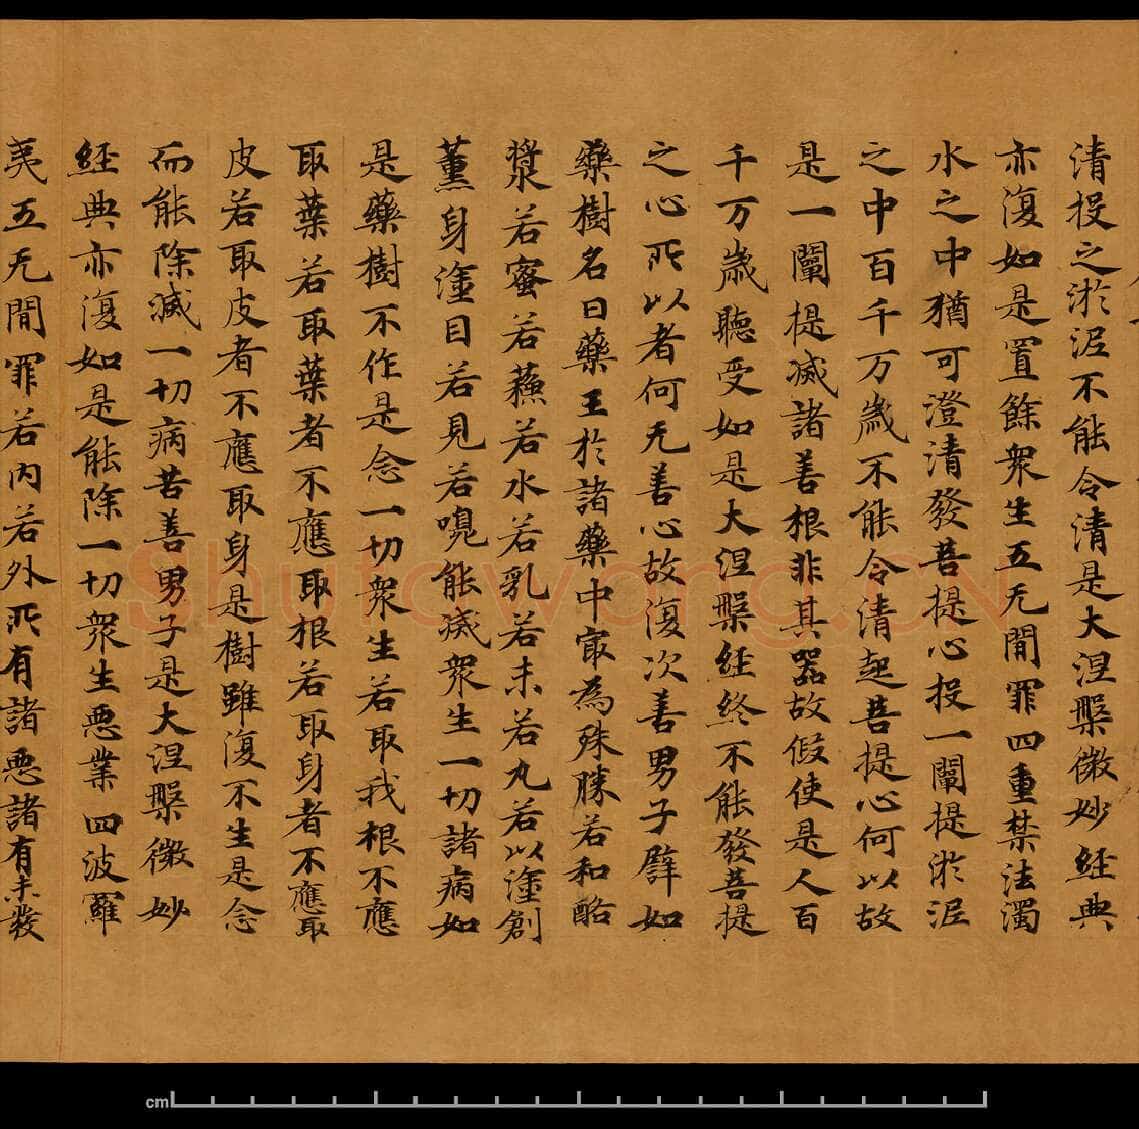 清投之淤泥不能令清是大涅槃微妙経典
亦復如是置餘衆生五无閒罪四重禁法濁
水之中猶可澄清發菩提心投一闡提淤泥
之中百千万歲不能令清起菩提心何以故
是一闡提滅諸善根非其器故假使是人百
千万歲聽受如是大涅槃経終不能發菩提
之心所以者何无善心故復次善男子譬如
藥樹名曰藥王於諸藥中冣為殊勝若和酪
漿若蜜若蘓若水若乳若末若丸若以塗創
薫身塗目若見若嗅能滅衆生一切諸病如
是藥樹不作是念一切衆生若取我根不應
取葉若取葉者不應取根若取身者不應取
皮若取皮者不應取身是樹雖復不生是念
而能除滅一切病苦善男子是大涅槃微妙
経典亦復如是能除一切衆生悪業四波羅
夷五无閒罪若内若外所有諸悪諸有未發
Shutawang.CN
cm